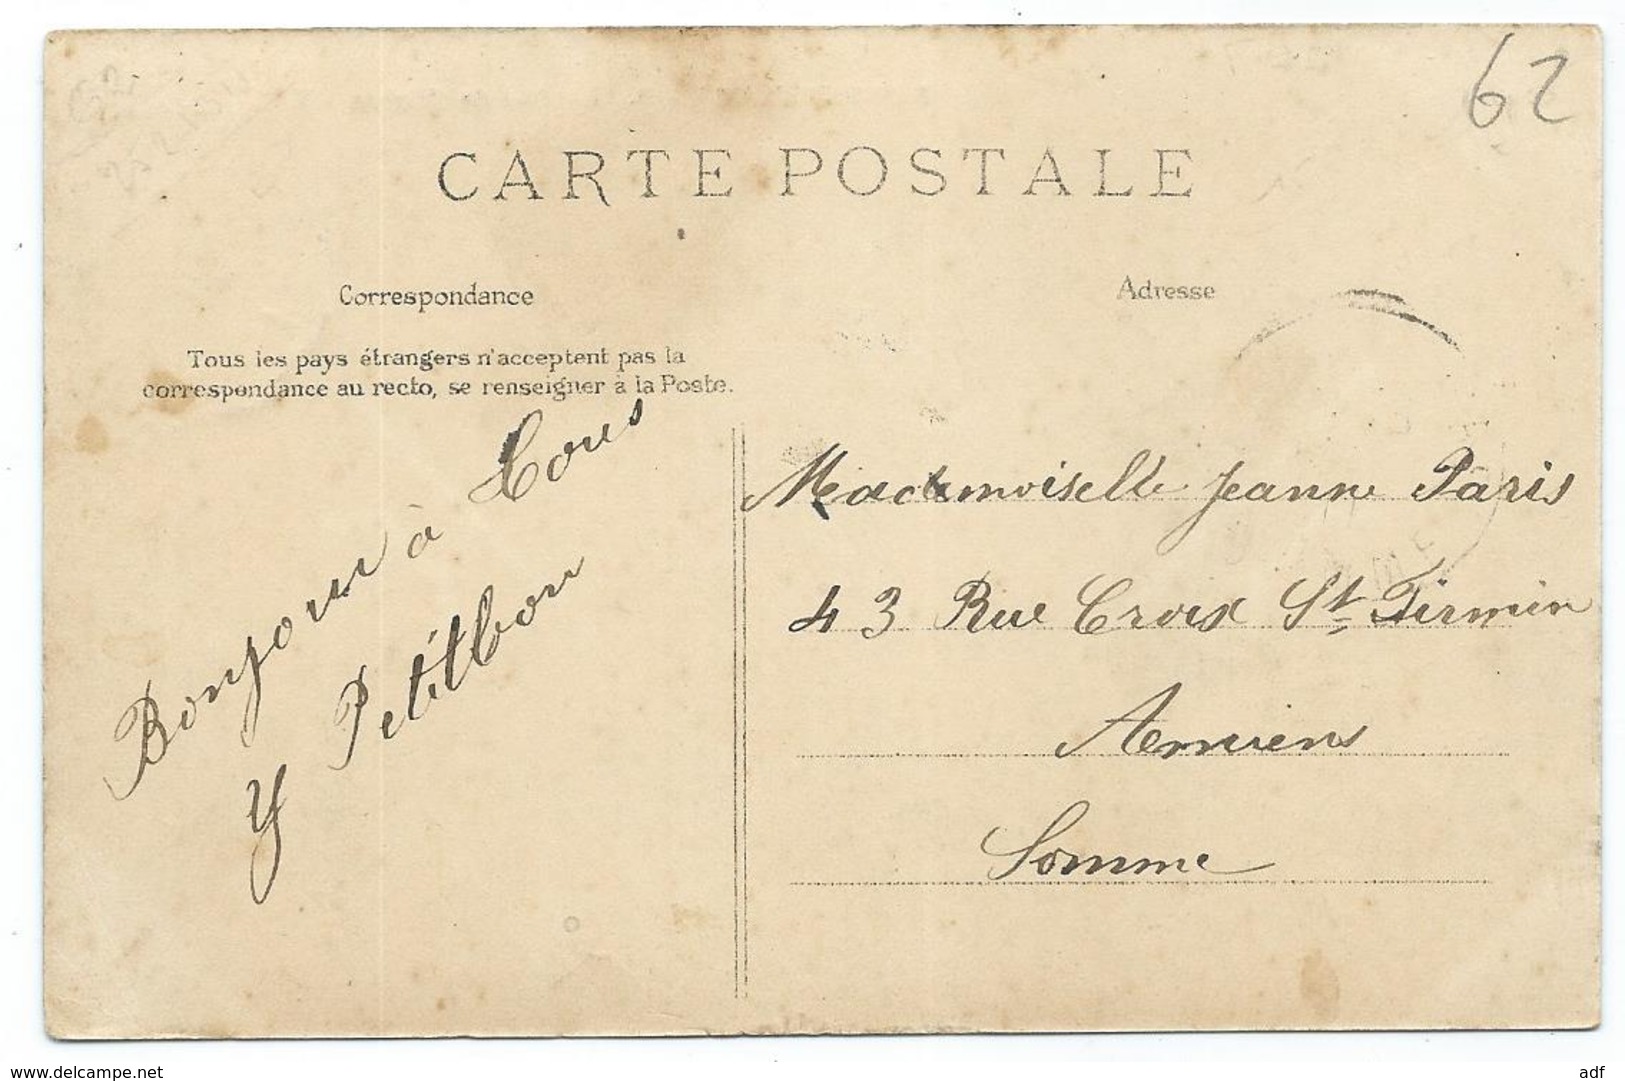 62
CARTE POSTALE
Correspondance
Adresse
Tous les pays étrangers n'acceptent pas la
correspondance au recto, se renseigner à la Poste.
Bonjour à Tous
Y Petitbon
Mademoiselle Jeanne Paris
43 Rue Croix St Firmin
Amiens
Somme
www.delcampe.net
adf